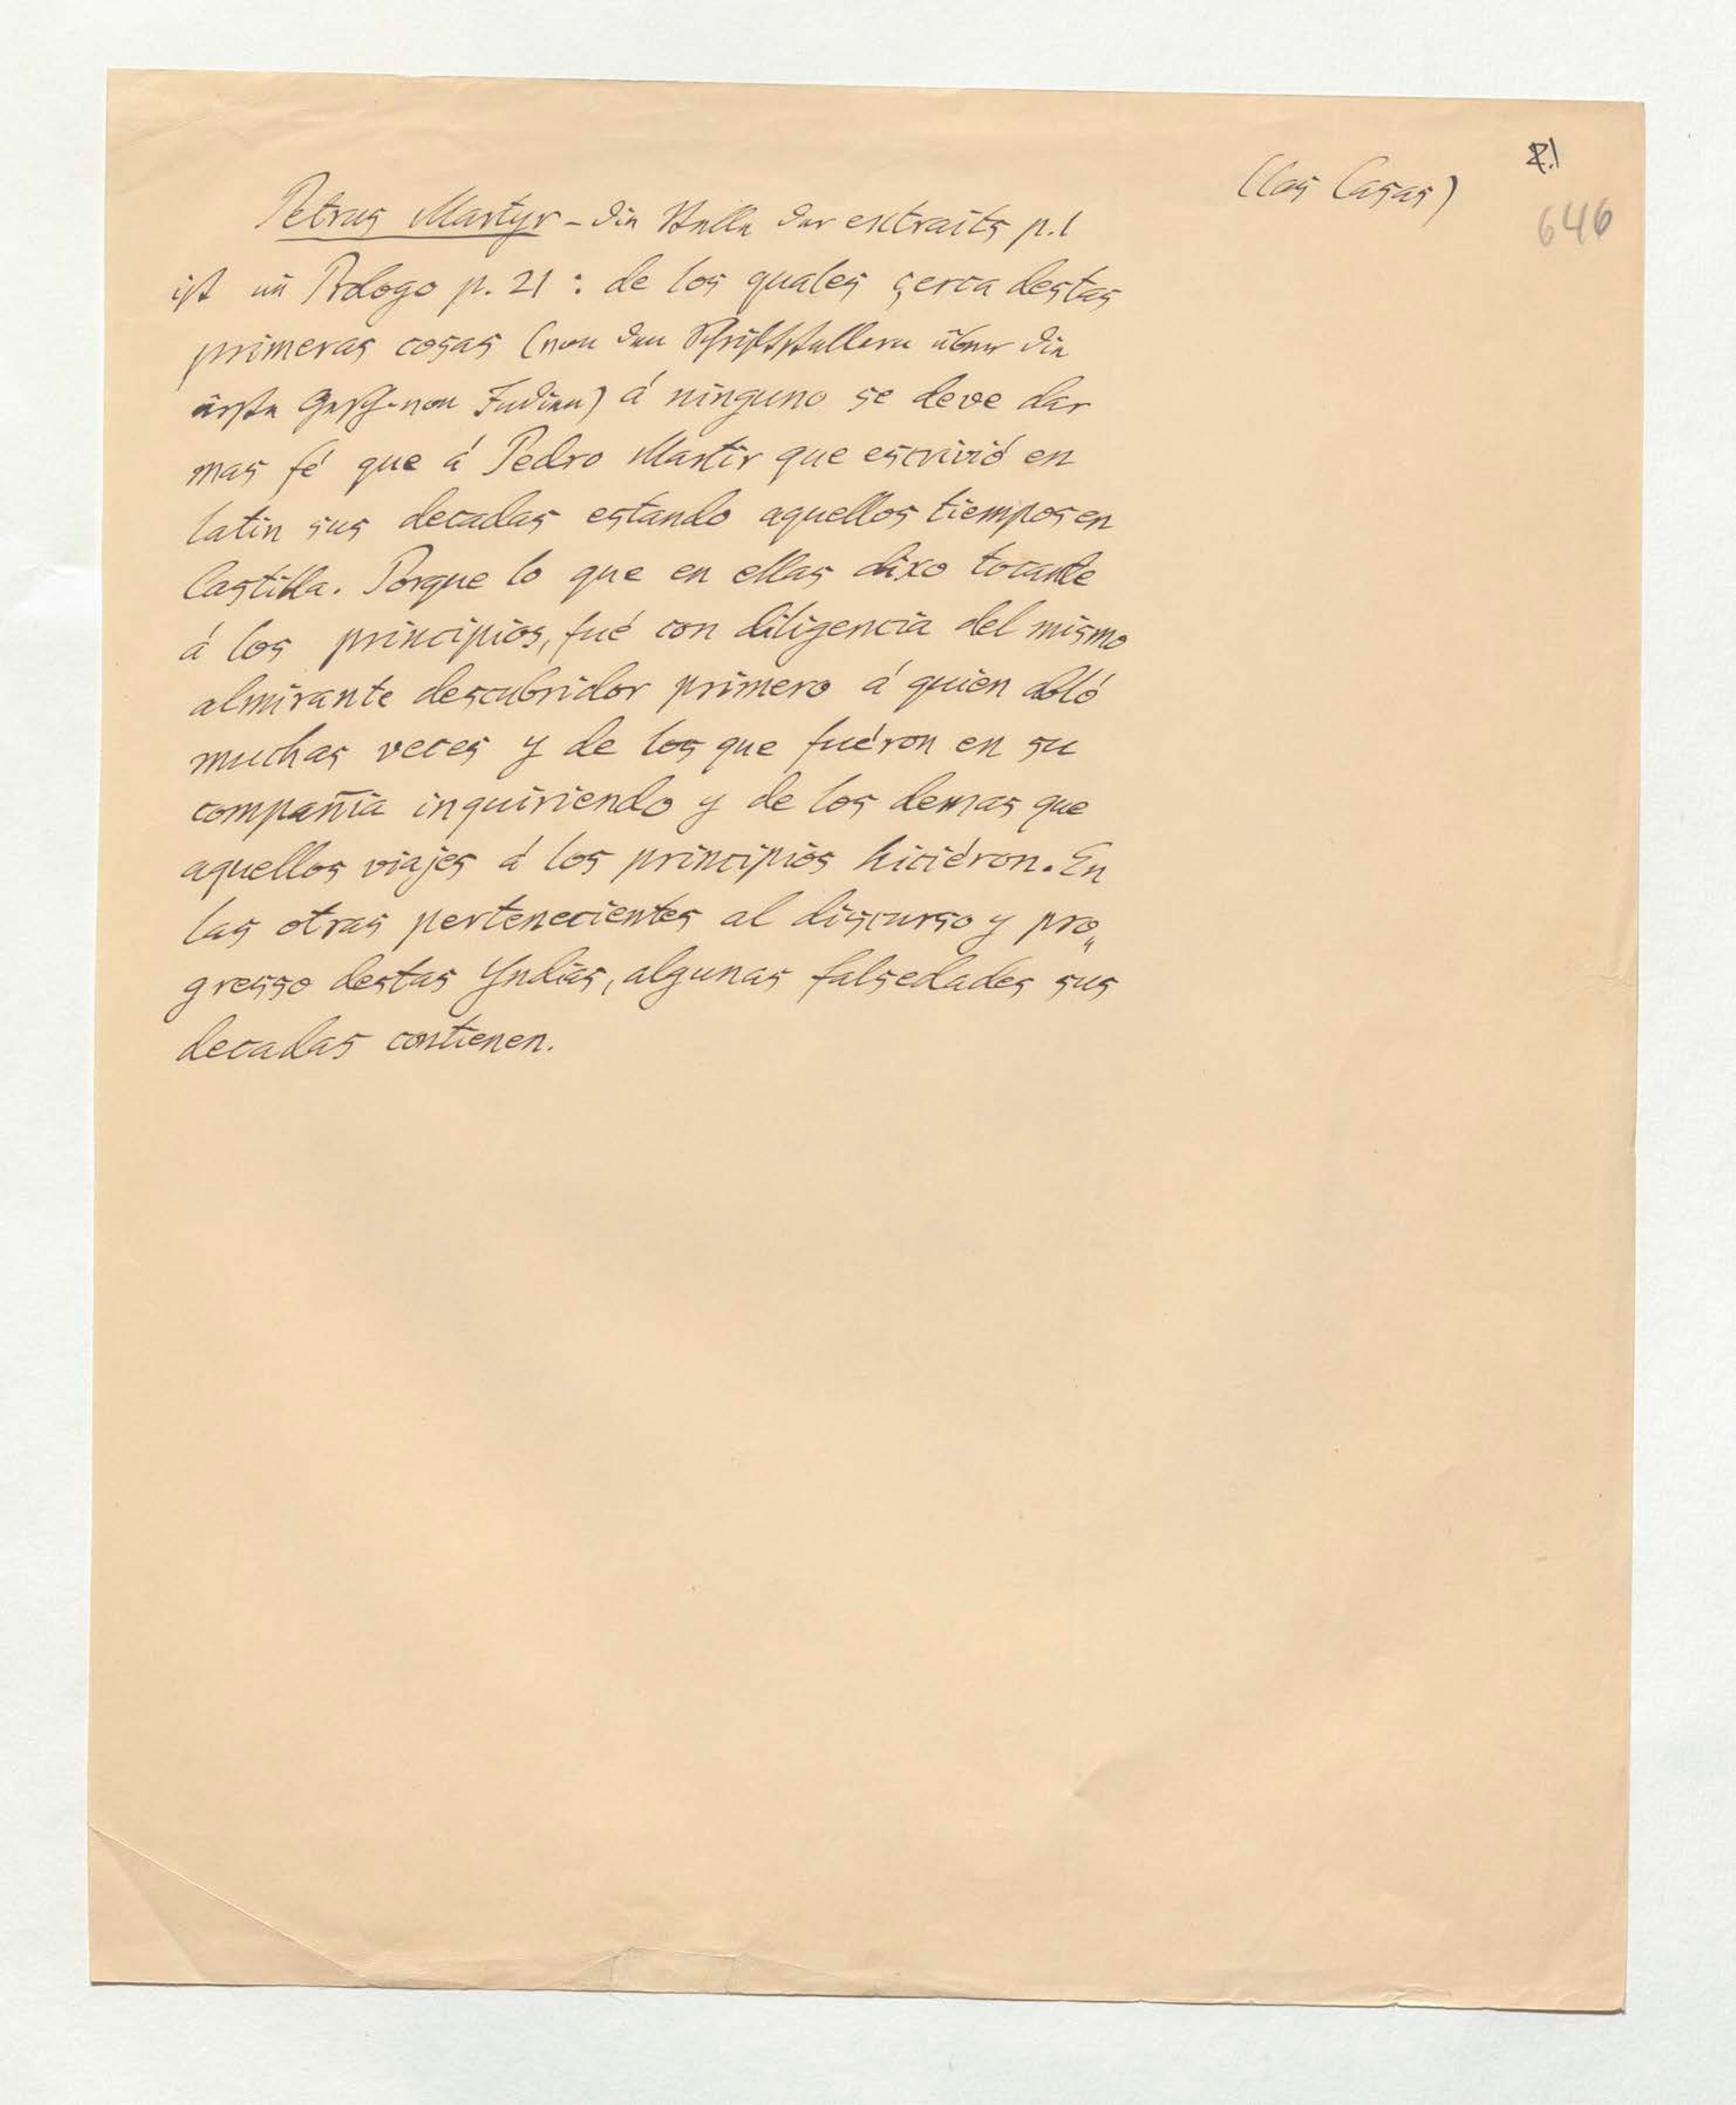 (las Casas)
646
Petrus Martyr - die Stelle der extraits p. 1
ist im Prologo p. 21 : de los quales çerca destas
primeras cosas (von den Schriftstellern über die
erste Gesch. von Indien) á ninguno se deve dar
mas fé que á Pedro Martir que escrivió en
latin sus decadas estando aquellos tiempos en
Castilla. Porque lo que en ellas dixo tocante
á los principios, fué con diligencia del mismo
almirante descubridor primero á quien abló
muchas veces y de los que fuéron en su
compañia inquiriendo y de los demas que
aquellos viajes á los principios hiciéron. En
las otras pertenecientes al discurso y pro„
gresso destas Yndias, algunas falsedades sus
decadas contienen.